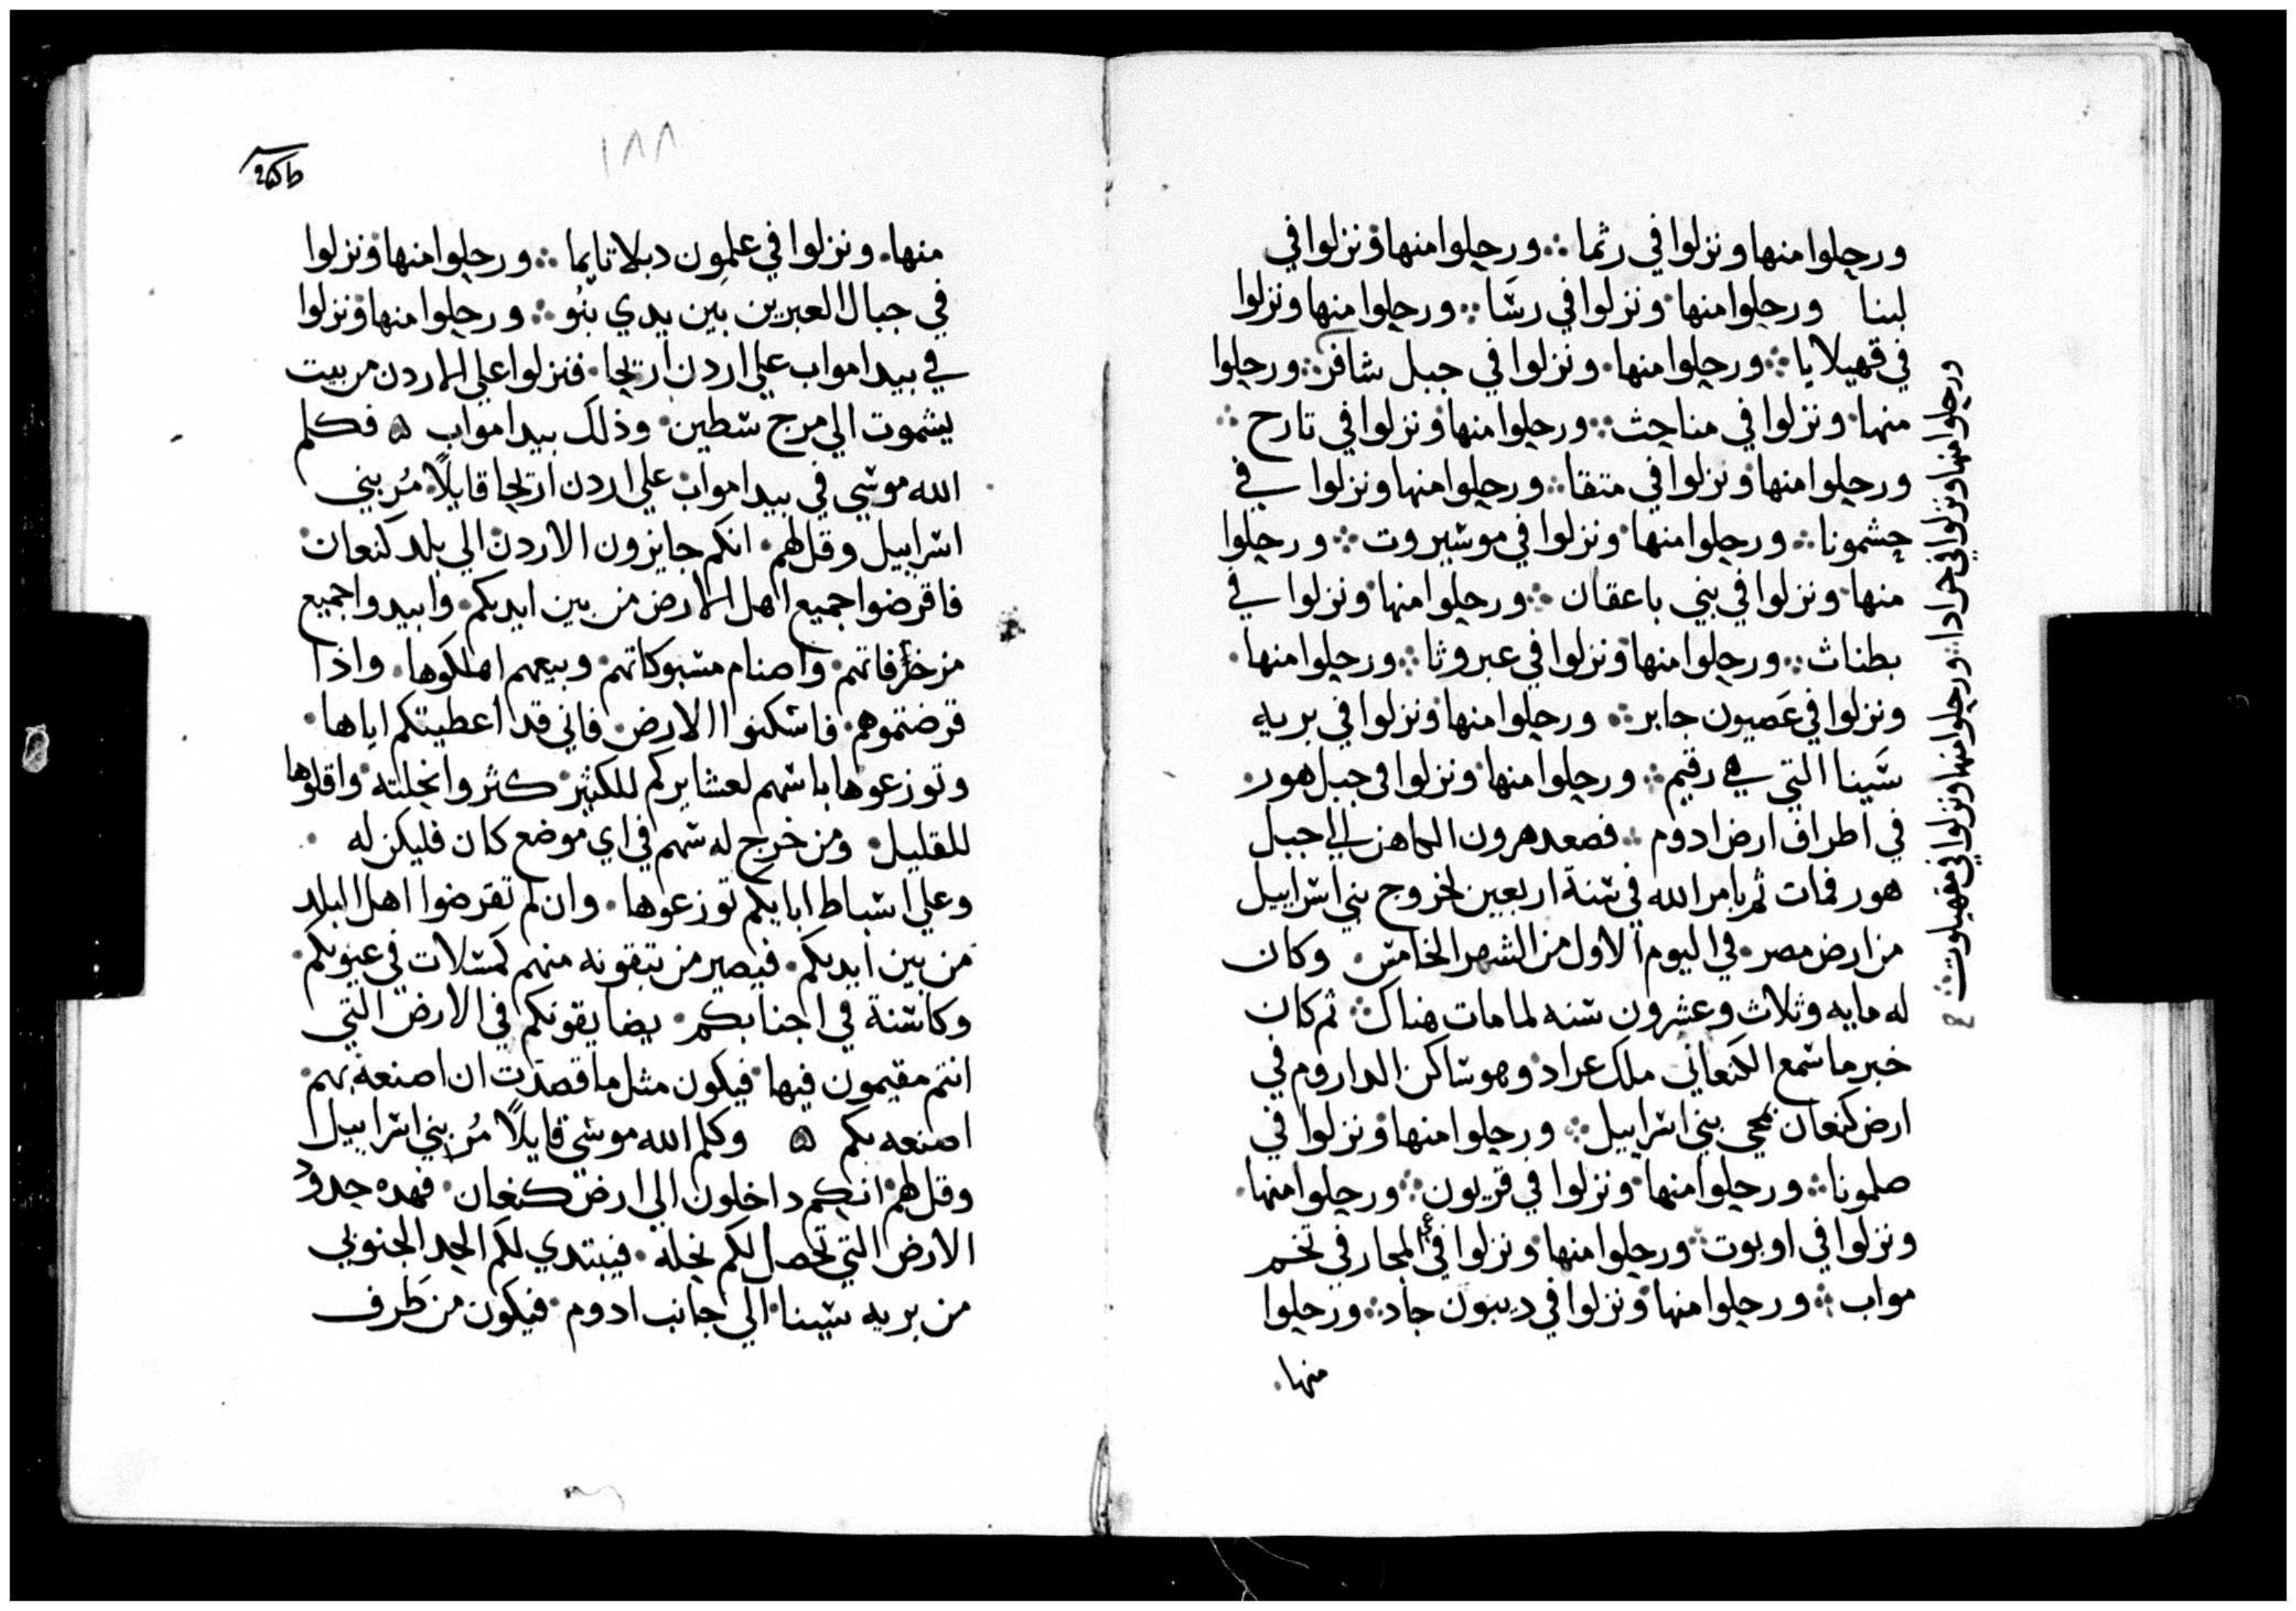 ورحلوا منها ونزلوا في رثما ورحلوا منها ونزلوا في
لبنا ورحلوا منها ونزلوا في رسا ورحلوا منها ونزلوا
في قهيلايا ورحلوا منها ونزلوا في جبل شافر ورحلوا
منها ونزلوا في مناحث ورحلوا منها ونزلوا في تارح
ورحلوا منها ونزلوا في متقا ورحلوا منها ونزلوا في
حشمونا ورحلوا منها ونزلوا في موسيروت ورحلوا
منها ونزلوا في بني ياعقان ورحلوا منها ونزلوا في
يطناث ورحلوا منها ونزلوا في عبروثا ورحلوا منها
ونزلوا في عَصيون جابر ورحلوا منها ونزلوا في بريه
سَينا التي هي رقيم ورحلوا منها ونزلوا في جبل هور
في اطراف ارض ادوم فصعد هرون الكاهن الي جبل
هور فمات ثم بامر الله في سنة اربعين لخروج بني اسراييل
من ارض مصر في اليوم الاول من الشهر الخامس وكان
له مايه وثلاث وعشرون سنه لما مات هناك ثم كان
خبر ما سمع الكنعاني ملك عراد وهو ساكن الداروم في
ارض كنعان بمجي بني اسراييل ورحلوا منها ونزلوا في
صلمونا ورحلوا منها ونزلوا في قريون ورحلوا منها
ونزلوا في اوبوت ورحلوا منها ونزلوا في المجاز في تخم
مواب ورحلوا منها ونزلوا في ديبون جاد ورحلوا
منها
ورحلوا منها ونزلوا في حرادا ورحلوا منها ونزلوا في مقهيلوت
١٨٨
منها ونزلوا في علمون دبلاتايما ورحلوا منها ونزلوا
في جبال العبرين بين يدي نبُو ورحلوا منها ونزلوا
في بيدا مواب علي اردن اريحا فنزلوا علي الاردن من بيت
يشموت الي مرج سطين وذلك بيدا مواب ه فكلم
الله موسي في بيدا مواب علي اردن اريحا قايلاً مُر بني
اسراييل وقل لهم انكم جايزون الاردن الي بلد كنعان
فاقرضوا جميع اهل الارض من بين ايديكم وابيدوا جميع
مزخرفاتهم واصنام مسبوكاتهم وبيعهم اهلكوها واذا
قرضتموهم فاسكنوا الارض فاني قد اعطيتكم اياها
وتوزعوها باسهم لعشايركم للكثير كثروا نحلته واقلوها
للقليل ومن خرج له سهم في اي موضع كان فليكن له
وعلي اسباط ابايكم توزعوها وان لم تقرضوا اهل البلد
من بين ايديكم فيصير من تبقونه منهم كمسلات في عيونكم
وكاسنة في اجنابكم يضايقونكم في الارض التي
انتم مقيمون فيها فيكون مثل ما قصدت ان اصنعه بهم
اصنعه بكم ه وكلم الله موسي قايلاً مُر بني اسراييل
وقل لهم انكم داخلون الي ارض كنعان فهده حدود
الارض التي تحصل لكم نحله فيبتدي لكم الحد الجنوبي
من بريه سينا الي جانب ادوم فيكون من طَرف